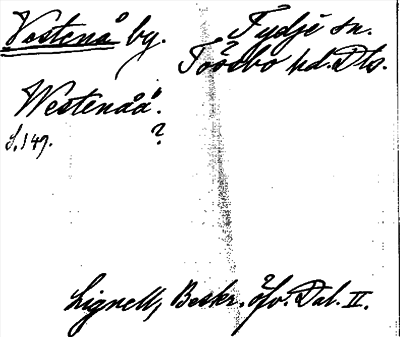 Vestenå by. Tydje sn.
Tössbo hd. Dls.
Westenåå.
S. 149. ?
Lignell, Beskr. öfv. Dal. II.